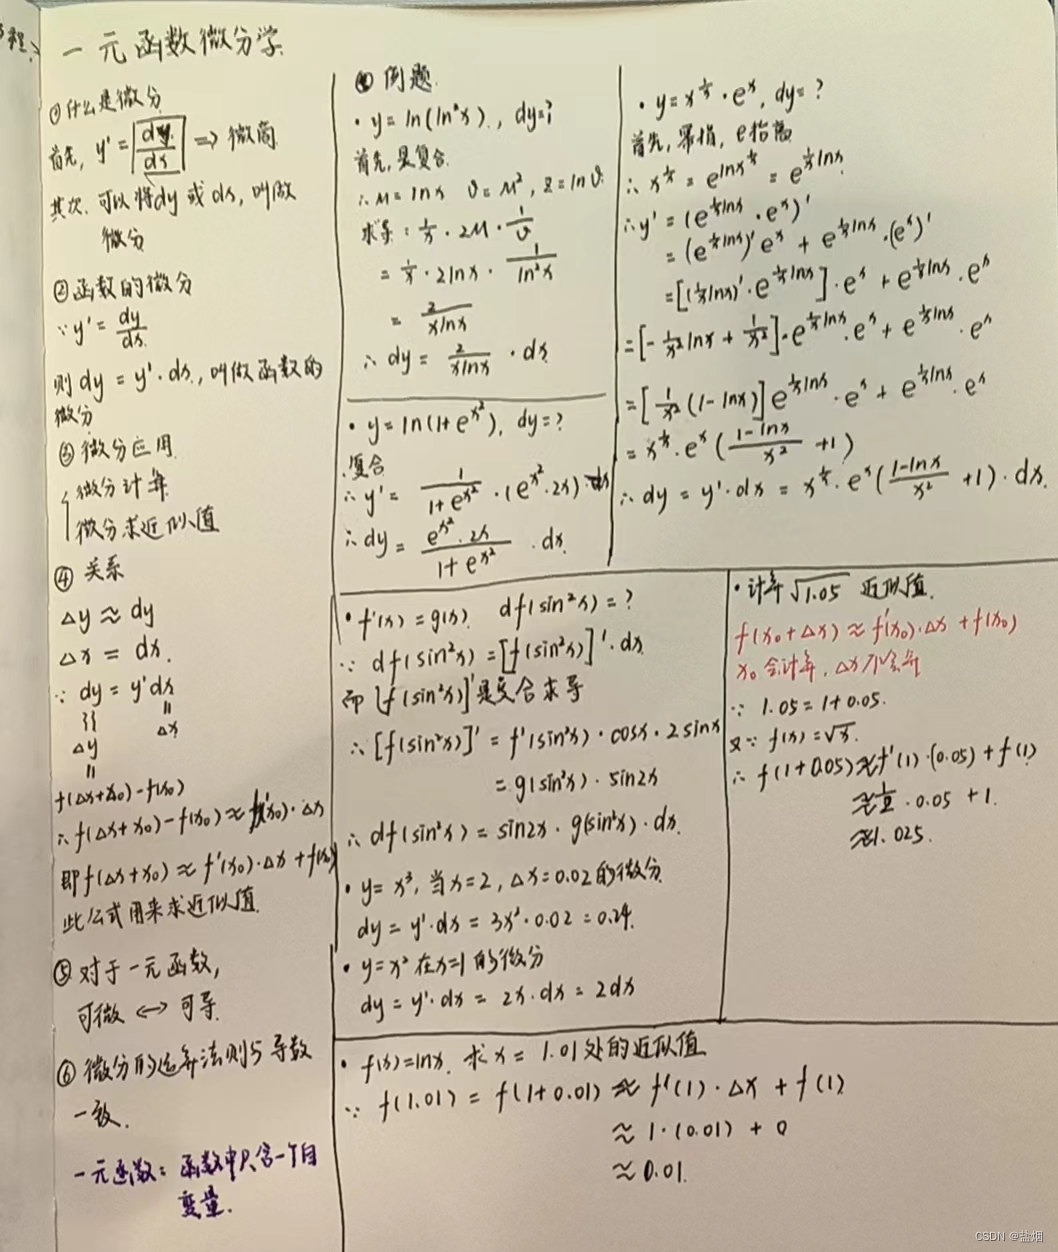 一元函数微分学
①什么是微分
首先, y' = dy/dx ⇒ 微商
其次, 可以将dy或dx, 叫做
微分
②函数的微分
∵ y' = dy/dx
则 dy = y'·dx, 叫做函数的
微分
③微分应用
微分计算
微分求近似值
④ 关系
Δy ≈ dy
Δx = dx.
∵ dy = y'dx
Δy Δx
f(Δx+x₀)-f(x₀)
∴ f(Δx+x₀)-f(x₀) ≈ f'(x₀)·Δx
即 f(Δx+x₀) ≈ f'(x₀)·Δx + f(x₀)
此公式用来求近似值.
⑤ 对于一元函数,
可微 ↔ 可导.
⑥ 微分的运算法则与导数
一致.
一元函数: 函数中只含一个自
变量.
例题
· y = ln(ln²x), dy=?
首先, 是复合.
∴ u = lnx v = u², z = lnv.
求导: 1/x · 2u · 1/v
= 1/x · 2lnx · 1/ln²x
= 2/xlnx
∴ dy = 2/xlnx · dx
· y = ln(1+e^x²), dy=?
复合
∴ y' = 1/1+e^x² · (e^x²·2x)
∴ dy = e^x²·2x/1+e^x² · dx.
· y = x^1/x · e^x, dy=?
首先, 幂指, e抬高
∴ x^1/x = e^lnx^1/x = e^1/x lnx
∴ y' = (e^1/x lnx · e^x)'
= (e^1/x lnx)' e^x + e^1/x lnx·(e^x)'
= [(1/x lnx)'·e^1/x lnx]·e^x + e^1/x lnx·e^x
= [-1/x² lnx + 1/x²]·e^1/x lnx·e^x + e^1/x lnx·e^x
= [1/x²(1-lnx)]e^1/x lnx·e^x + e^1/x lnx·e^x
= x^1/x·e^x(1-lnx/x² +1)
∴ dy = y'·dx = x^1/x·e^x(1-lnx/x² +1)·dx.
· f'(x) = g(x), df(sin²x) = ?
∵ df(sin²x) = [f(sin²x)]'·dx
而 [f(sin²x)]' 是复合求导
∴ [f(sin²x)]' = f'(sin²x)·cosx·2sinx
= g(sin²x)·sin2x
∴ df(sin²x) = sin2x·g(sin²x)·dx.
· y = x³, 当x=2, Δx=0.02的微分
dy = y'·dx = 3x²·0.02 = 0.24.
· y = x² 在x=1的微分
dy = y'·dx = 2x·dx = 2dx
· 计算√1.05 近似值.
f(x₀+Δx) ≈ f'(x₀)·Δx + f(x₀)
x₀会计算, Δx不会算
∵ 1.05 = 1+0.05.
又∵ f(x) = √x.
∴ f(1+0.05) ≈ f'(1)·(0.05) + f(1)
≈ 1/2·0.05 + 1.
≈ 1.025.
· f(x) = lnx, 求x = 1.01处的近似值
∵ f(1.01) = f(1+0.01) ≈ f'(1)·Δx + f(1)
≈ 1·(0.01) + 0
≈ 0.01.
CSDN @盐烟